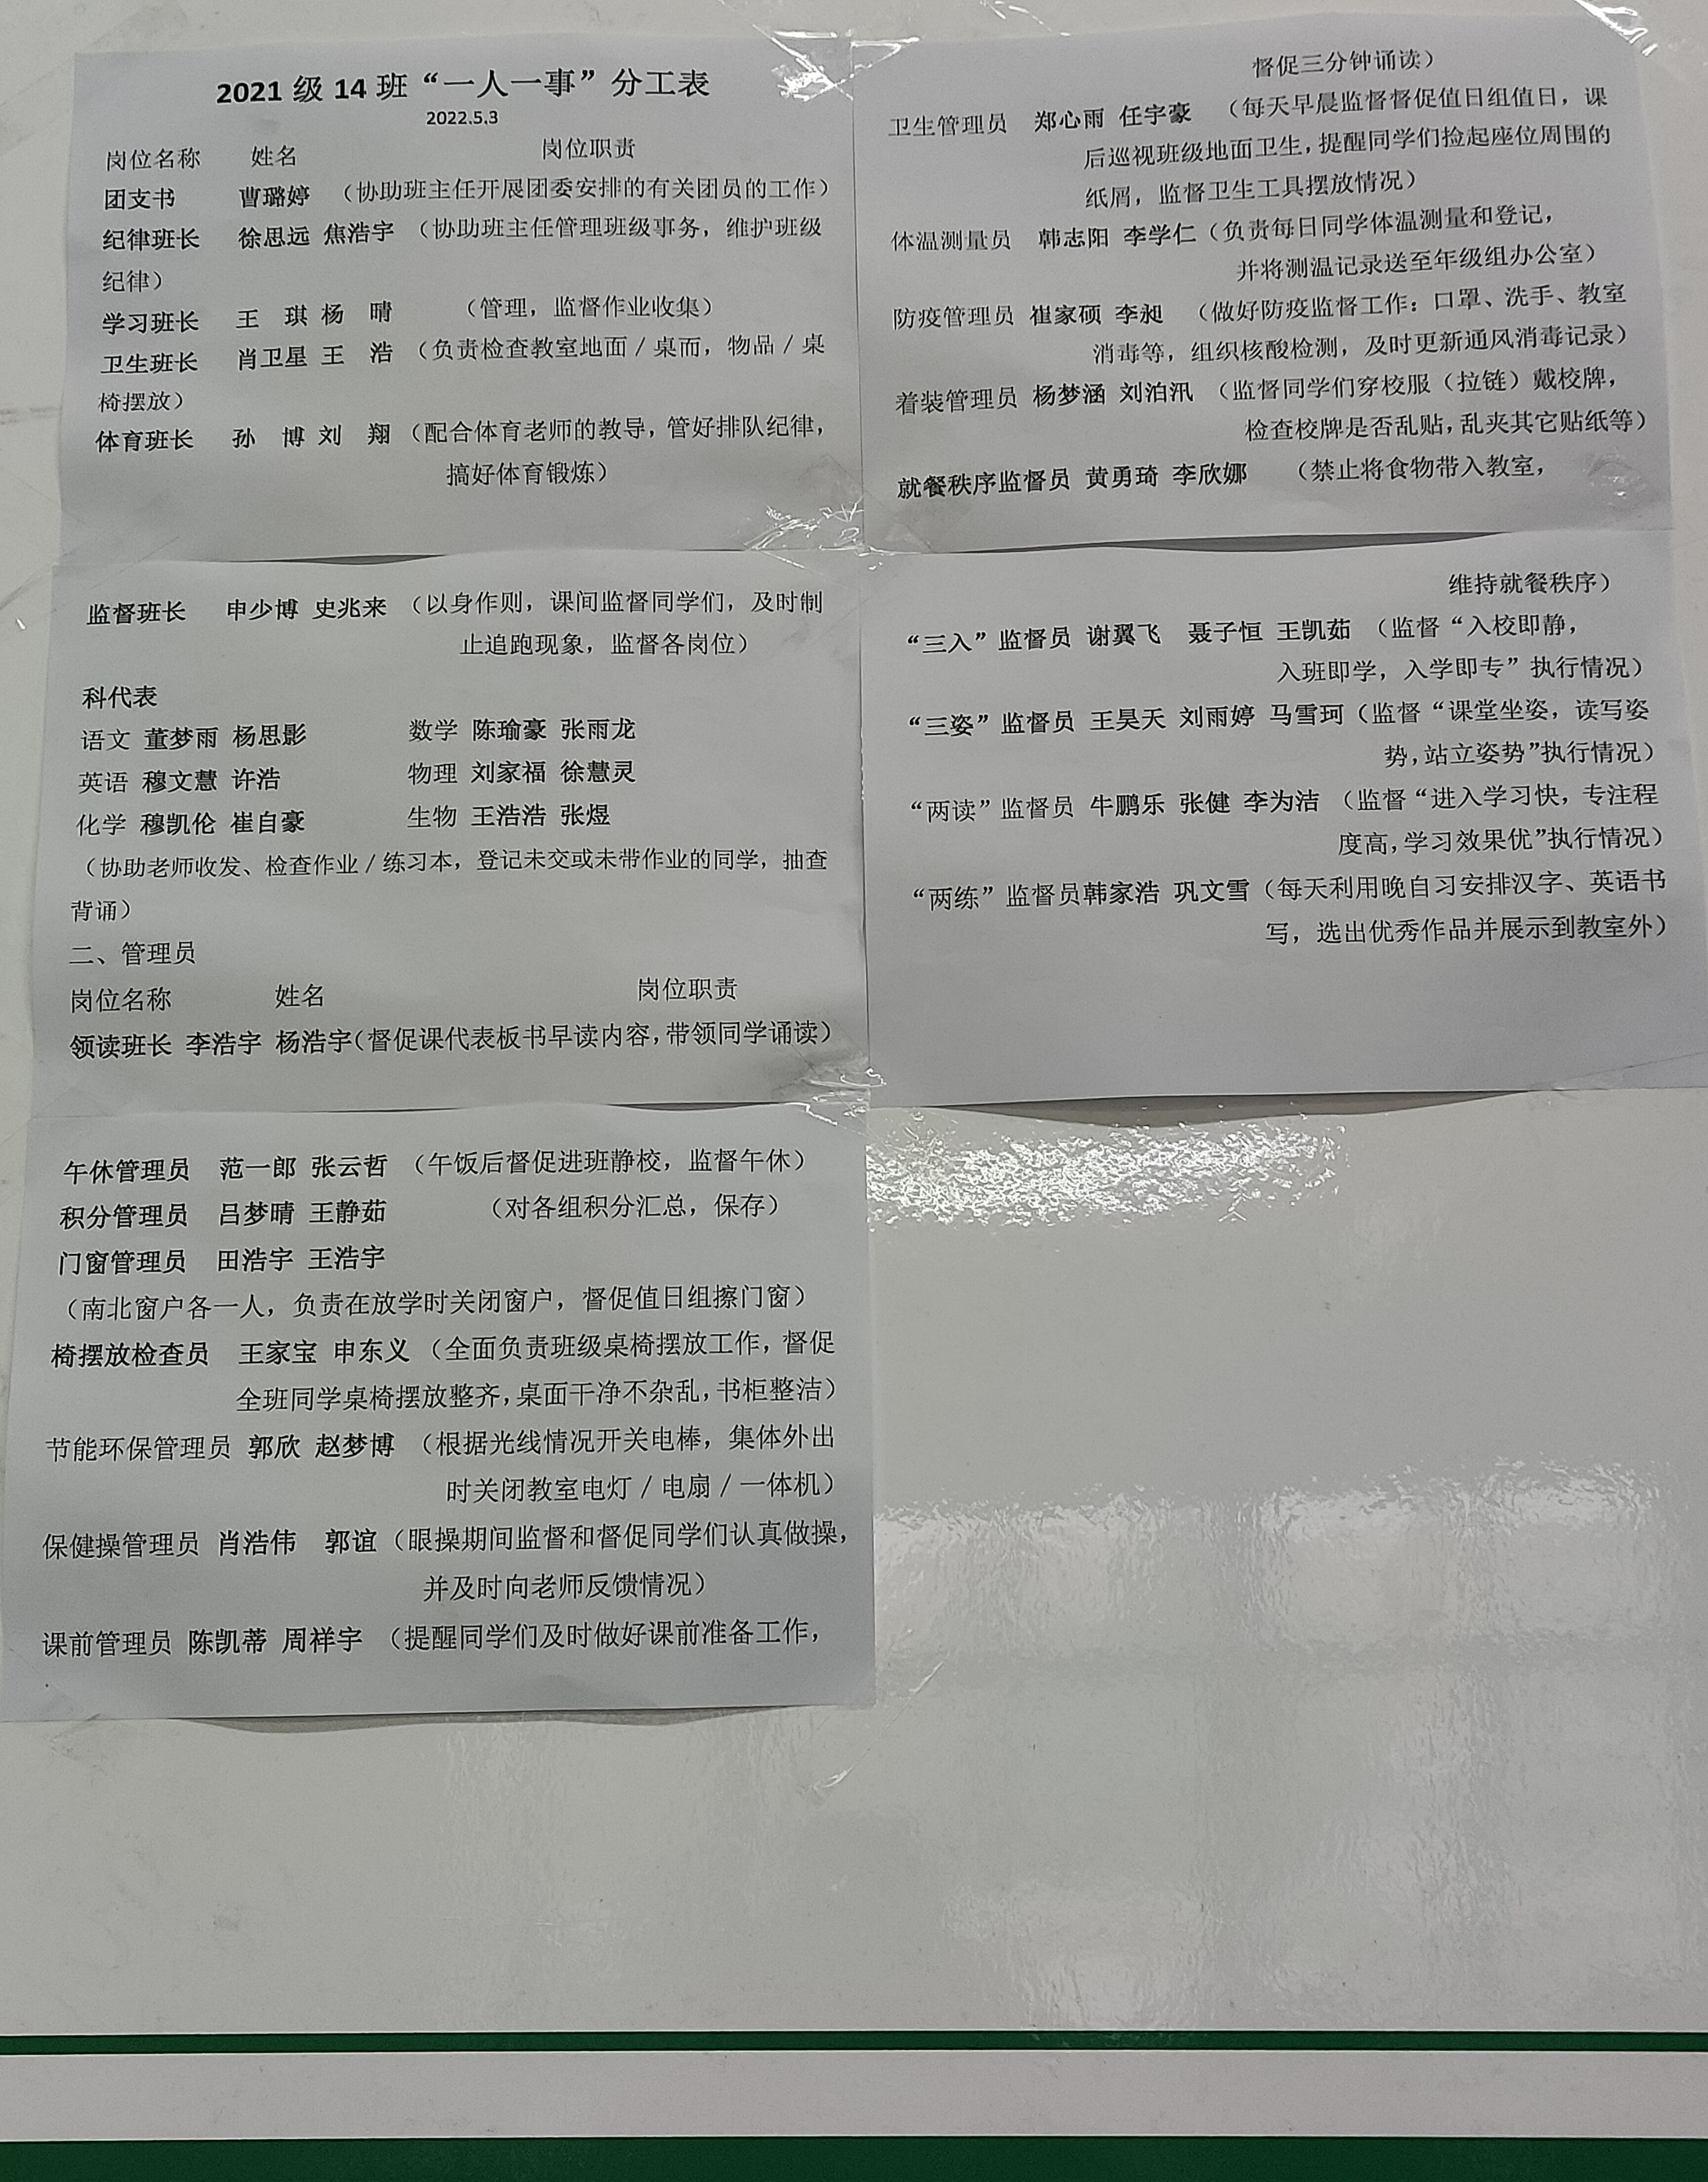 2021 级 14 班“一人一事”分工表
2022.5.3
岗位名称 姓名 岗位职责
团支书 曹璐婷 （协助班主任开展团委安排的有关团员的工作）
纪律班长 徐思远 焦浩宇 （协助班主任管理班级事务，维护班级
纪律）
学习班长 王 琪 杨 晴 （管理，监督作业收集）
卫生班长 肖卫星 王 浩 （负责检查教室地面／桌而，物品／桌
椅摆放）
体育班长 孙 博 刘 翔 （配合体育老师的教导，管好排队纪律，
搞好体育锻炼）
监督班长 申少博 史兆来 （以身作则，课间监督同学们，及时制
止追跑现象，监督各岗位）
科代表
语文 董梦雨 杨思影 数学 陈瑜豪 张雨龙
英语 穆文慧 许浩 物理 刘家福 徐慧灵
化学 穆凯伦 崔自豪 生物 王浩浩 张煜
（协助老师收发、检查作业／练习本，登记未交或未带作业的同学，抽查
背诵）
二、管理员
岗位名称 姓名 岗位职责
领读班长 李浩宇 杨浩宇（督促课代表板书早读内容，带领同学诵读）
午休管理员 范一郎 张云哲 （午饭后督促进班静校，监督午休）
积分管理员 吕梦晴 王静茹 （对各组积分汇总，保存）
门窗管理员 田浩宇 王浩宇
（南北窗户各一人，负责在放学时关闭窗户，督促值日组擦门窗）
椅摆放检查员 王家宝 申东义 （全面负责班级桌椅摆放工作，督促
全班同学桌椅摆放整齐，桌面干净不杂乱，书柜整洁）
节能环保管理员 郭欣 赵梦博 （根据光线情况开关电棒，集体外出
时关闭教室电灯／电扇／一体机）
保健操管理员 肖浩伟 郭谊（眼操期间监督和督促同学们认真做操，
并及时向老师反馈情况）
课前管理员 陈凯蒂 周祥宇 （提醒同学们及时做好课前准备工作，
督促三分钟诵读）
卫生管理员 郑心雨 任宇豪 （每天早晨监督督促值日组值日，课
后巡视班级地面卫生，提醒同学们捡起座位周围的
纸屑，监督卫生工具摆放情况）
体温测量员 韩志阳 李学仁（负责每日同学体温测量和登记，
并将测温记录送至年级组办公室）
防疫管理员 崔家硕 李昶 （做好防疫监督工作：口罩、洗手、教室
消毒等，组织核酸检测，及时更新通风消毒记录）
着装管理员 杨梦涵 刘泊汛 （监督同学们穿校服（拉链）戴校牌，
检查校牌是否乱贴，乱夹其它贴纸等）
就餐秩序监督员 黄勇琦 李欣娜 （禁止将食物带入教室，
维持就餐秩序）
“三入”监督员 谢翼飞 聂子恒 王凯茹 （监督“入校即静，
入班即学，入学即专”执行情况）
“三姿”监督员 王昊天 刘雨婷 马雪珂（监督“课堂坐姿，读写姿
势，站立姿势”执行情况）
“两读”监督员 牛鹏乐 张健 李为洁 （监督“进入学习快，专注程
度高，学习效果优”执行情况）
“两练”监督员韩家浩 巩文雪（每天利用晚自习安排汉字、英语书
写，选出优秀作品并展示到教室外）